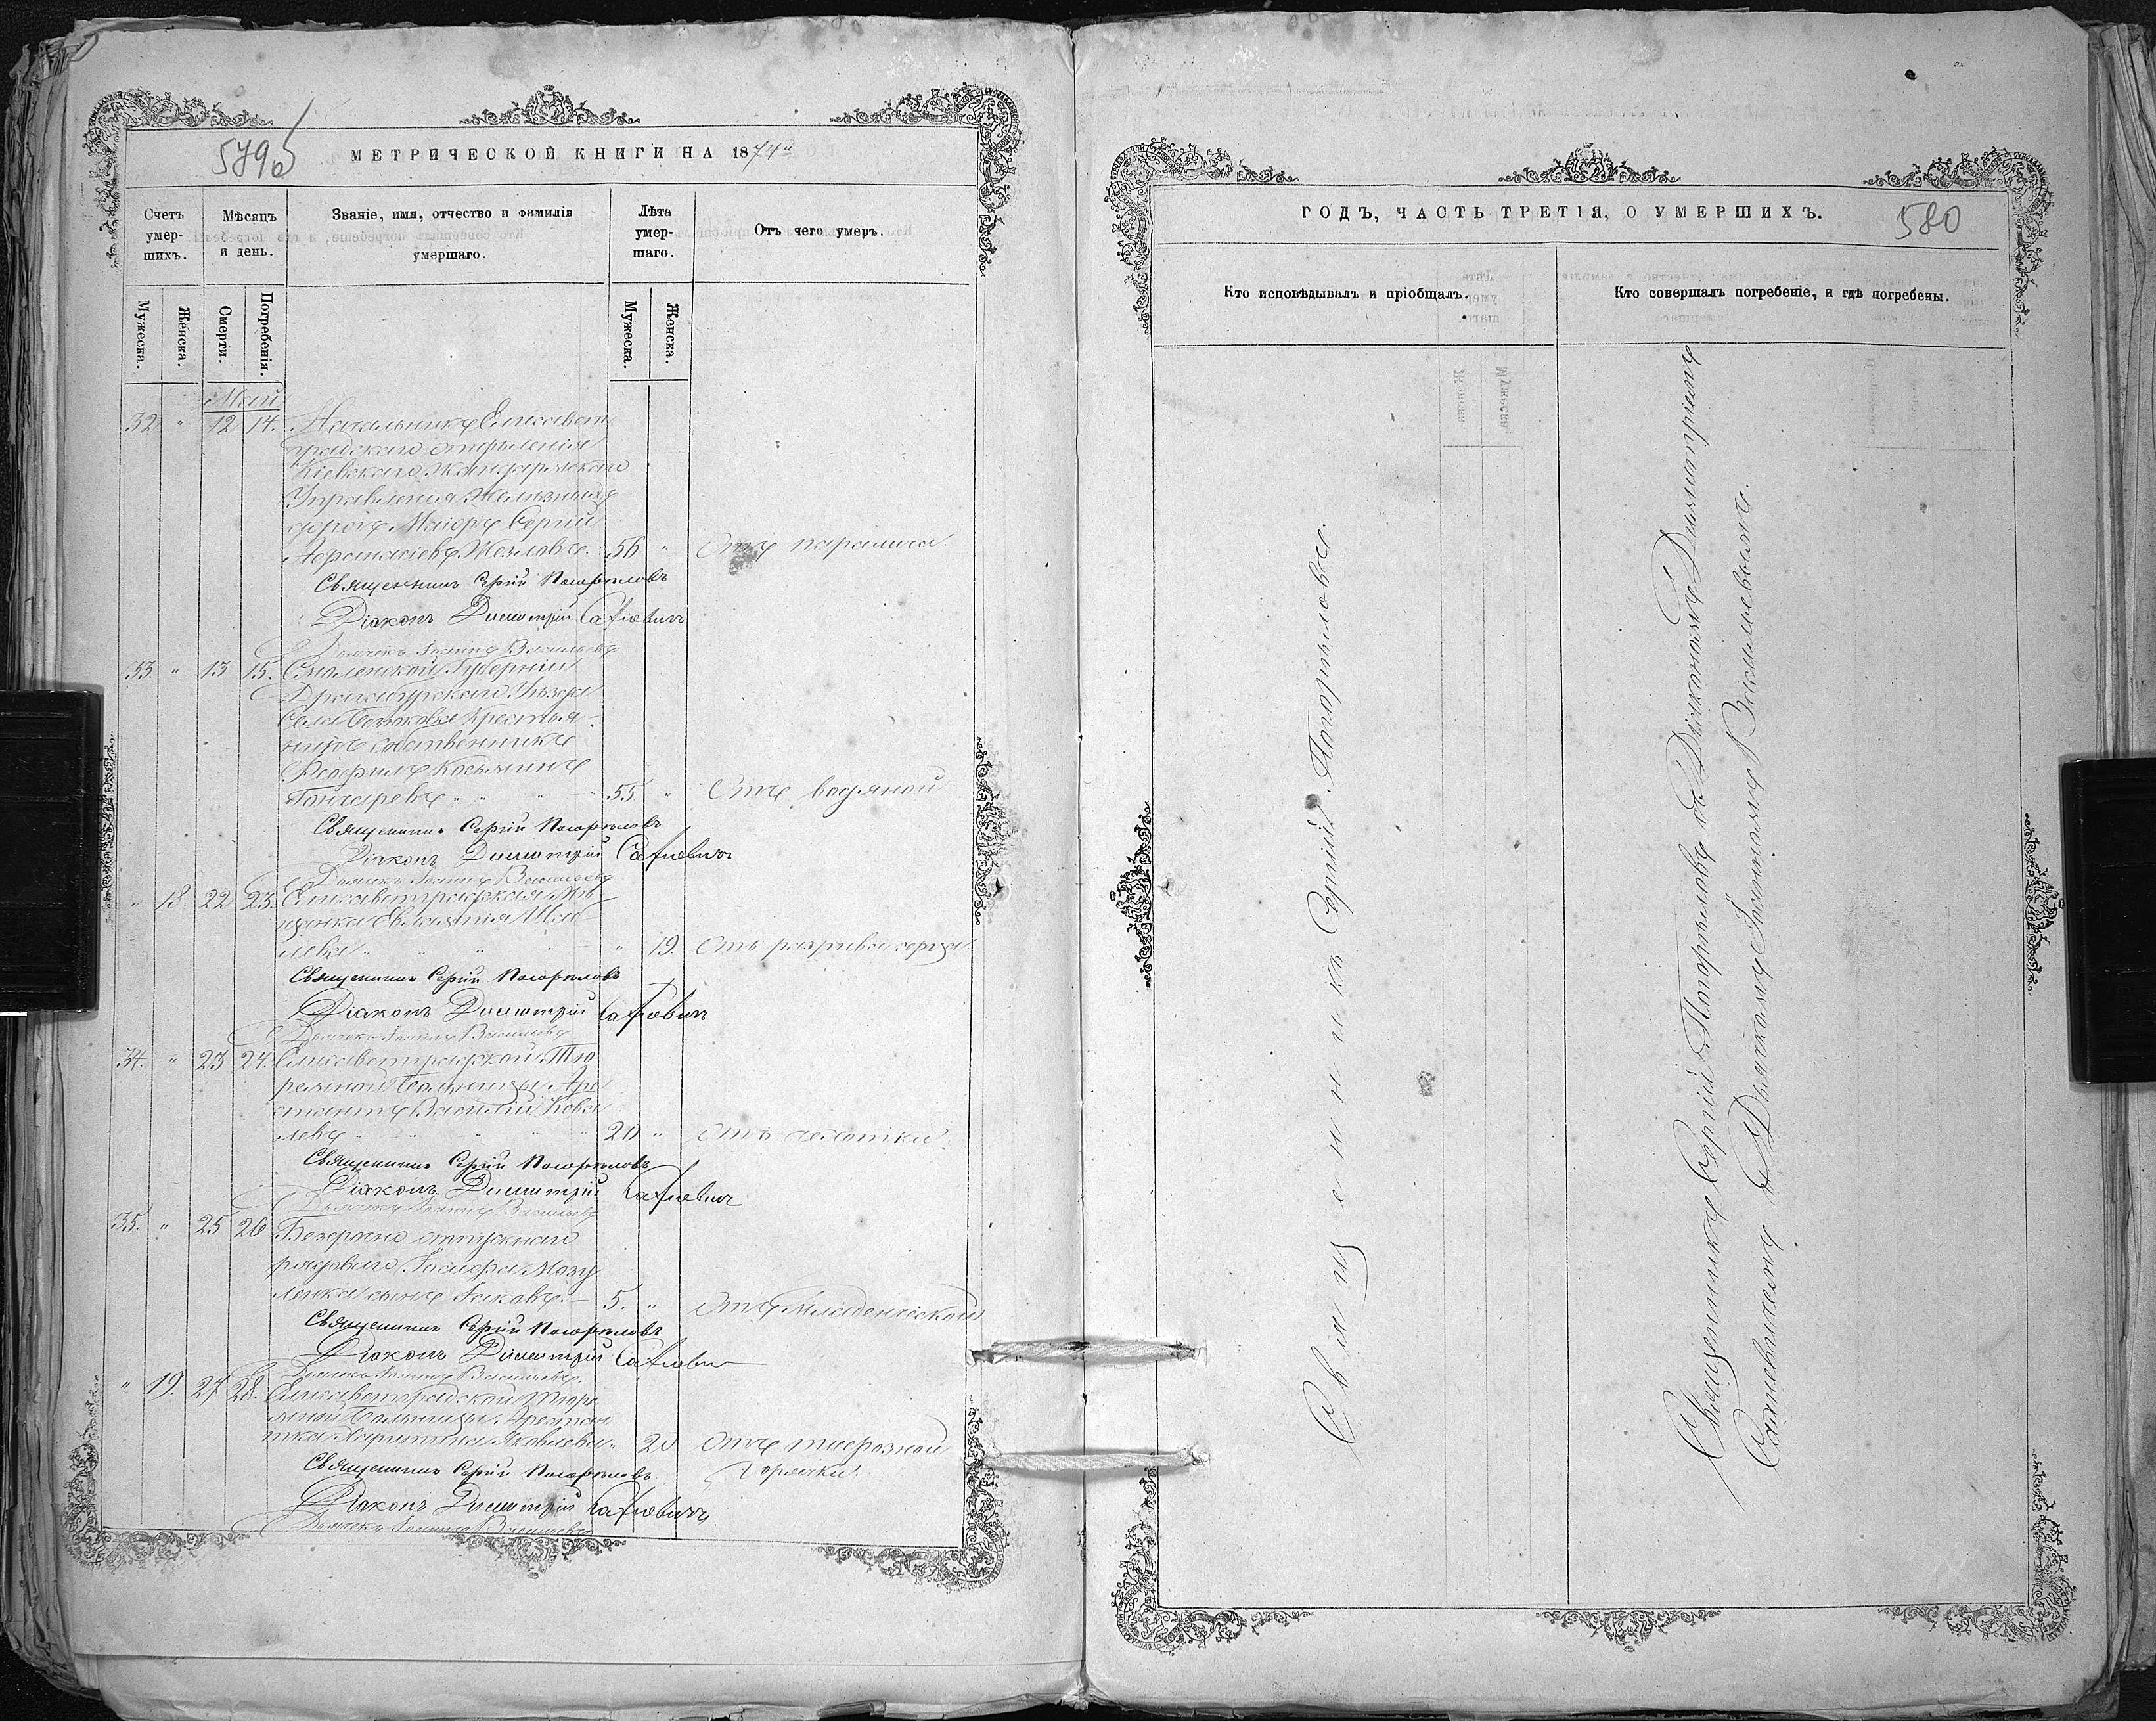 579б
МЕТРИЧЕСКОЙ КНИГИ НА 1874й
Счетъ умер-шихъ.
Мѣсяцъ и день.
Званіе, имя, отчество и фамилія умершаго.
Лѣта умер-шаго.
Отъ чего умеръ.
Мужеска.
Женска.
Смерти.
Погребенія.
Мужеска.
Женска.
Май
32 " 12 14. Начальникъ Елисавет
градскаго отдѣленія
Кіевскаго Жандармскаго
Управленія Желѣзныхъ
дорогъ Маіоръ Сергій
Аѳанасіевъ Жезловъ. 56 " Отъ паралича.
Священникъ Сергій Погорѣловъ
Діаконъ Димитрій
Дьячекъ Іоаннъ Васильевъ
33. " 13 15. Смоленской Губерніи
Уѣзда
Села Крестья-
нинъ собственникъ
Козьминъ
Гончаревъ " " " 55 " Отъ водяной
Священникъ Сергій Погорѣловъ
Діаконъ Димитрій
Дьячекъ Іоаннъ Васильевъ
" 18. 22 23. Елисаветградская Мѣ-
щанка Евлампія
лева " " " 19. Отъ разрыва сердца
Священникъ Сергій Погорѣловъ
Діаконъ Димитрій
Дьячекъ Іоаннъ Васильевъ
34. " 23 24. Елисаветградской Тю
ремной Больницы Аре
стантъ Василій Кова
левъ " " " 20 " Отъ чахотки.
Священникъ Сергій Погорѣловъ
Діаконъ Димитрій
Дьячекъ Іоаннъ Васильевъ
35. " 25 26 Безсрочно отпускнаго
рядоваго Мазу
ленка сынъ Іаковъ. 5. " Отъ младенческой
Священникъ Сергій Погорѣловъ
Діаконъ Димитрій
Дьячекъ Іоаннъ Васильевъ
" 19. 27 28. Елисаветградской Тюре
мной Больницы Арестан
тка Харитина Яковлева " 20 Отъ тифозной
Священникъ Сергій Погорѣловъ горячки.
Діаконъ Димитрій
Дьячекъ Іоаннъ Васильевъ
ГОДЪ, ЧАСТЬ ТРЕТІЯ, О УМЕРШИХЪ.
580
Кто исповѣдывалъ и пріобщалъ.
Кто совершалъ погребеніе, и гдѣ погребены.
Священникъ Сергій Погорѣловъ.
Священникъ Сергій Погорѣловъ съ Діакономъ Димитріемъ
и Дьячкомъ Іоанномъ Васильевымъ.